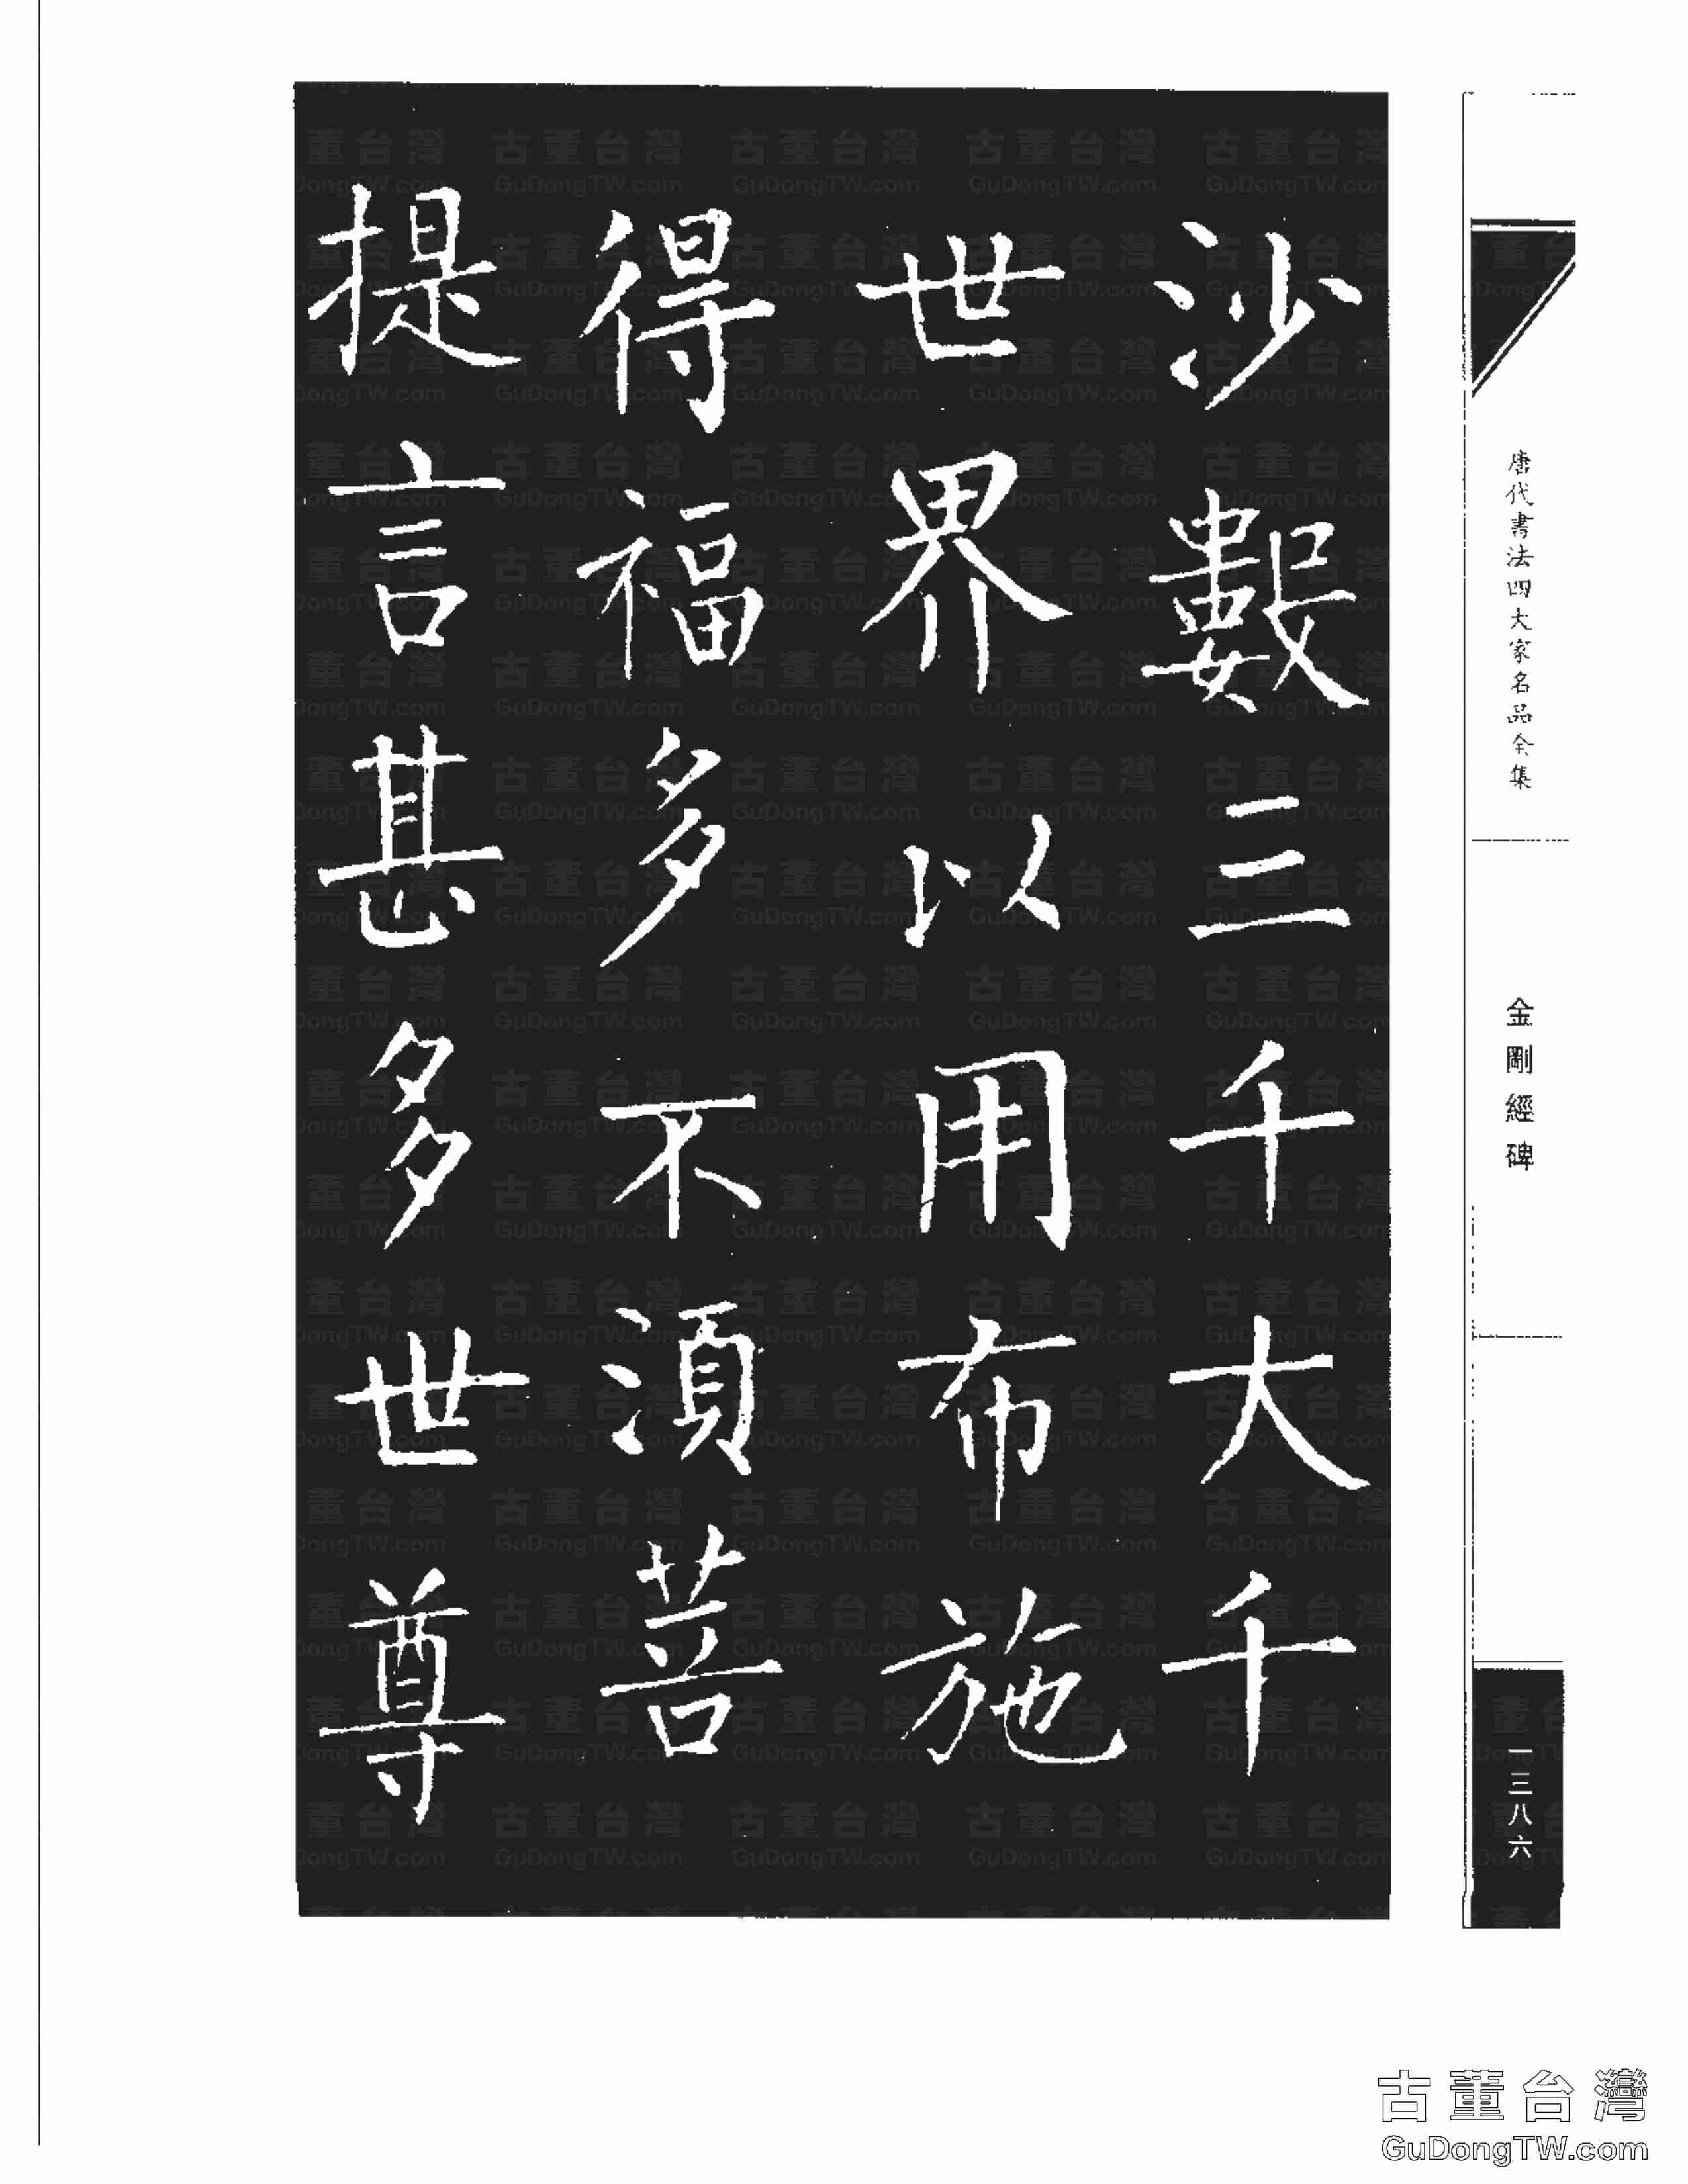 沙數三千大千
世界以用布施
得福多不湏菩
提言甚多世尊
唐代書法四大家名品全集
金剛經碑
一三八六
古董台灣
GuDongTW.com